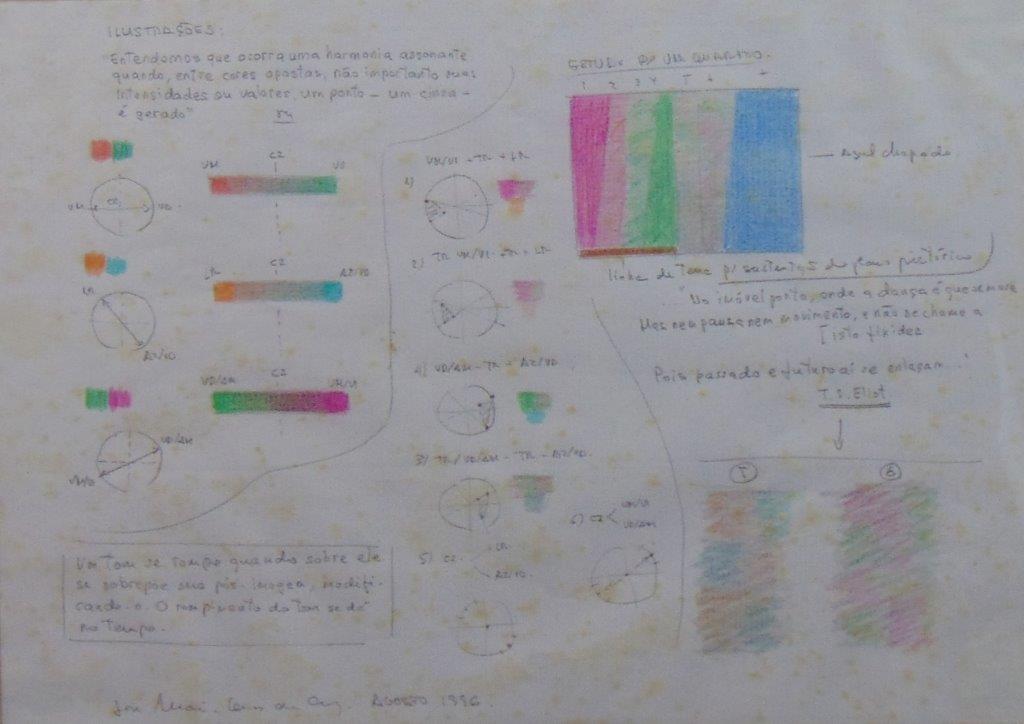 ILUSTRAÇÕES:
"Entendemos que ocorra uma harmonia assonante
quando, entre cores opostas, não importanto suas
intensidades ou valores, um ponto - um cinza -
é gerado"
VM CZ VD
VM CZ VD
LR CZ AZ/VD
LR
AZ/VD
VD/AM CZ VM/VI
VD/AM
Um tom se rompe quando sobre ele
se sobrepõe sua pós-imagem, modifi-
cando-o. O rompimento do tom se dá
no tempo.
VM/VI + TR + LR
1)
2) TR VM/VI + TR + LR
4) VD/AM - TR - AZ/VD
3) TR/VD/AM - TR - AZ/VD.
5) CZ LR
AZ/VD.
6) CZ VM/VI
VD/AM
ESTUDO DE UM QUADRADO.
1 2 3 4
Azul chapado
linha de terra p/ sustentação do plano pictórico
... "No imóvel ponto, onde a dança é que se move
Mas nem pausa nem movimento, e não se chame a
[isto fixidez
Pois passado e futuro aí se enlaçam..."
T. S. Eliot
5 6
AGOSTO 1996.